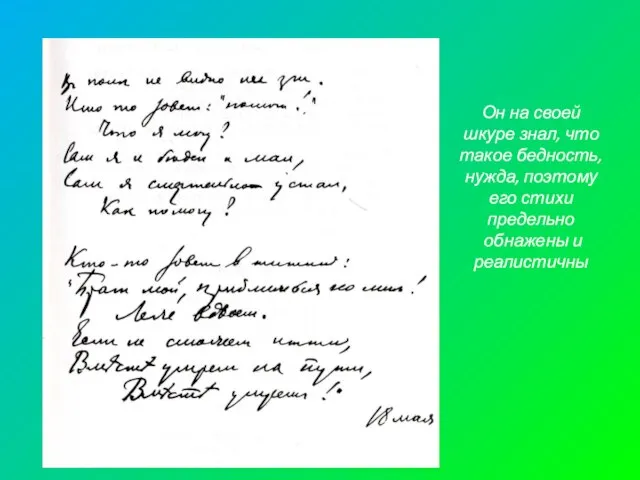 В поле не видно ни зги.
Кто то зовет: "помоги!"
Что я могу?
Сам я и беден и мал,
Сам я смертельно устал,
Как помогу?
Кто-то зовет в тишине:
"Брат мой, приблизься ко мне!
Легче вдвоем.
Если не сможем итти,
Вместе умрем на пути,
Вместе умрем!"
18 мая
Он на своей
шкуре знал, что
такое бедность,
нужда, поэтому
его стихи
предельно
обнажены и
реалистичны